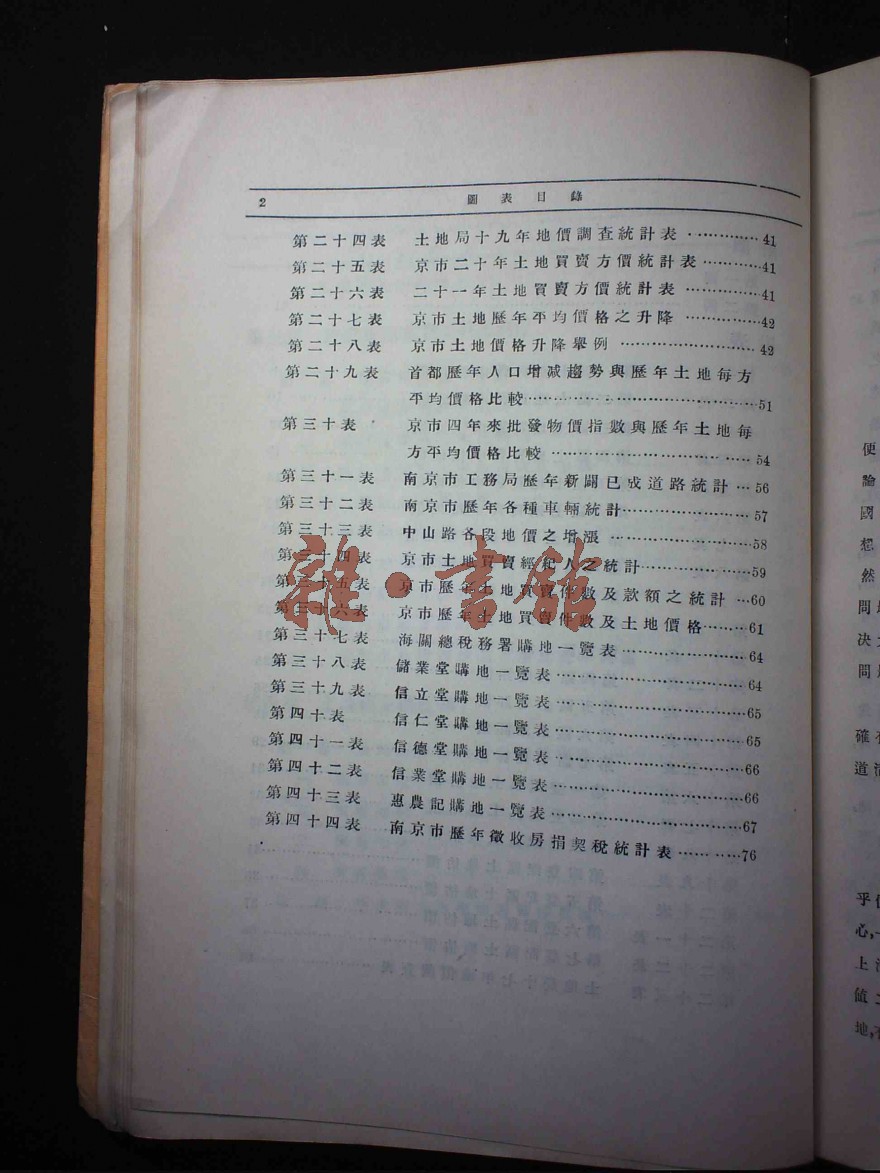 2 圖表目錄
第二十四表 土地局十九年地價調查統計表 ··············41
第二十五表 京市二十年土地買賣方價統計表··············41
第二十六表 二十一年土地買賣方價統計表 ··············41
第二十七表 京市土地歷年平均價格之升降 ··············42
第二十八表 京市土地價格升降舉例 ··················42
第二十九表 首都歷年人口增減趨勢與歷年土地每方
平均價格比較································51
第三十表 京市四年來批發物價指數與歷年土地每
方平均價格比較 ····························54
第三十一表 南京市工務局歷年新闢已成道路統計 ···56
第三十二表 南京市歷年各種車輛統計··················57
第三十三表 中山路各段地價之增漲 ··················58
第三十四表 京市土地買賣經紀人之統計················59
第三十五表 京市歷年土地買賣件數及款額之統計 ···60
第三十六表 京市歷年土地買賣件數及土地價格·········61
第三十七表 海關總稅務署購地一覽表 ················64
第三十八表 儲業堂購地一覽表························64
第三十九表 信立堂購地一覽表 ························65
第四十表 信仁堂購地一覽表 ························65
第四十一表 信德堂購地一覽表 ························66
第四十二表 信業堂購地一覽表························66
第四十三表 惠農記購地一覽表 ························67
第四十四表 南京市歷年徵收房捐契稅統計表 ·········76
雜·書館
便
論
國
想
然
問
決
問
確
道
乎
心,
上
值
地,